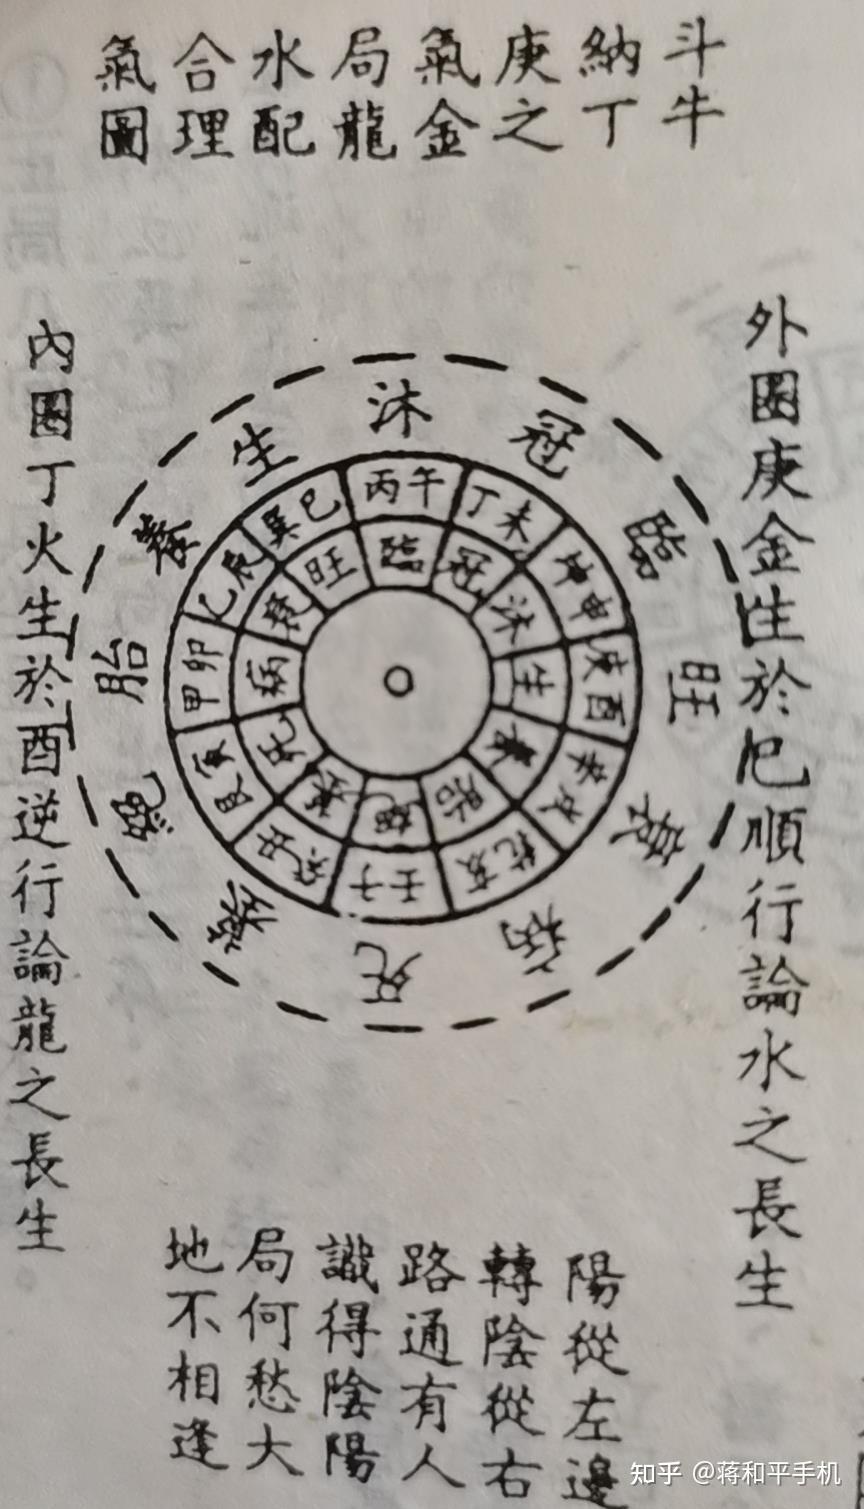 斗牛
納丁
庚之
氣金
局龍
水配
合理
氣圖
外圈庚金生於巳順行論水之長生
沐
冠
臨
旺
衰
病
死
絕
胎
養
生
丙午
丁未
坤申
庚酉
辛戌
乾亥
壬子
癸丑
艮寅
甲卯
乙辰
巽巳
臨
冠
沐
生
養
胎
絕
死
病
衰
旺
內圈丁火生於酉逆行論龍之長生
陽從左邊
轉陰從右
路通有人
識得陰陽
局何愁大
地不相逢
知乎 @蒋和平手机